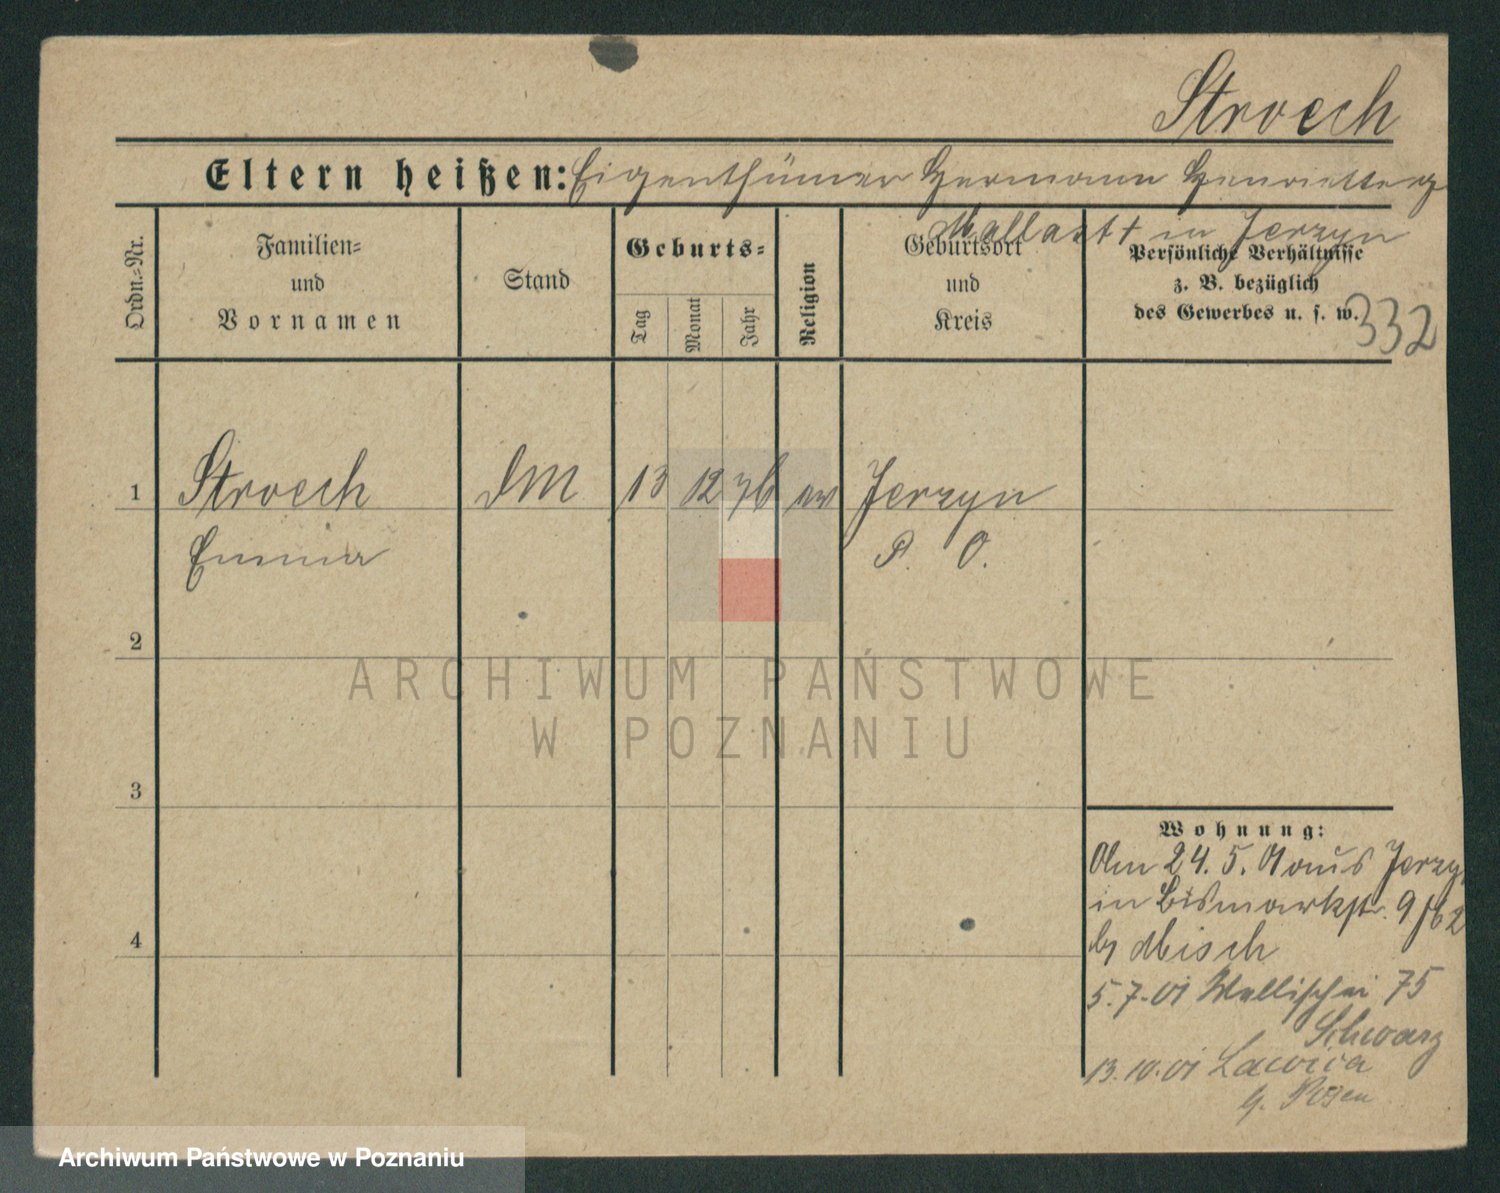 Stroech
Eltern heißen: Eigenthümer Hermann Henriette g
Mallast + in Jerzyn
Ordn.-Nr.
Familien-
und
Vornamen
Stand
Geburts-
Tag
Monat
Jahr
Religion
Geburtsort
und
Kreis
Persönliche Verhältnisse
z. B. bezüglich
des Gewerbes u. s. w.
332
1 Stroech DM 13 12 76 ev Jerzyn
Emma P. O.
2
3
4
Wohnung:
Am 24. 5. 01 aus Jerzy
in Bismarkstr. 9
b/
5.7.01 Wallischei 75
Schwarz
13.10.01 Lawica
Posen
ARCHIWUM PAŃSTWOWE
W POZNANIU
Archiwum Państwowe w Poznaniu